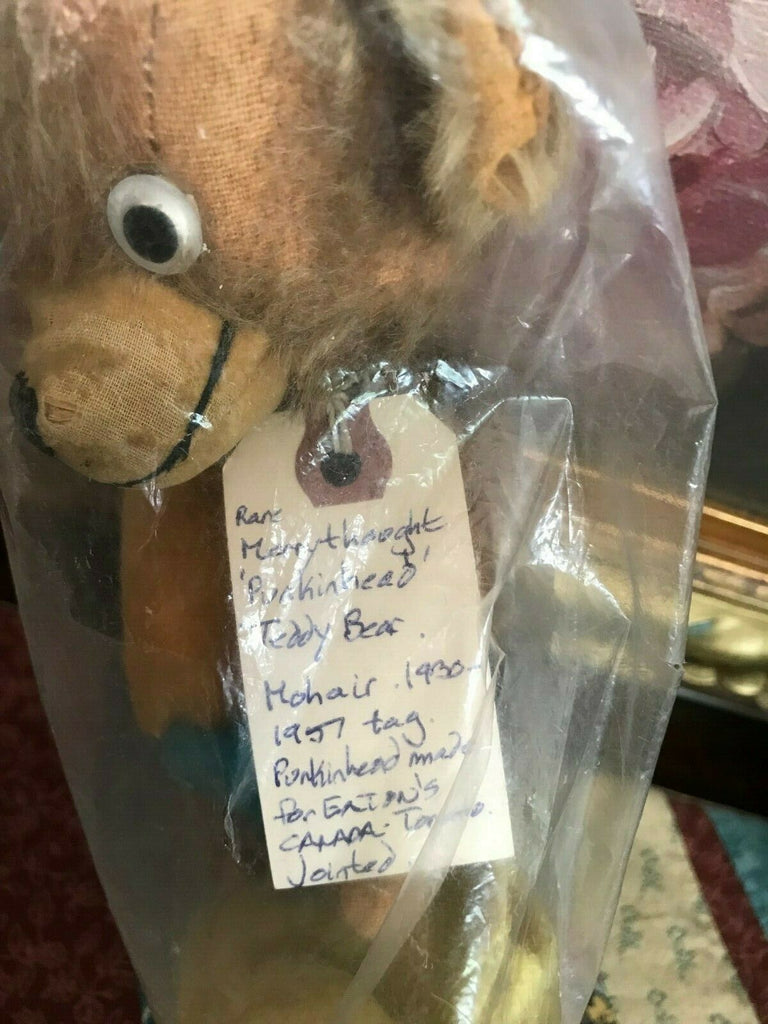 Rare
Merrythought
'Punkinhead'
Teddy Bear.
Mohair. 1930-
1957 tag.
Punkinhead made
for EATON'S
CANADA- Toronto.
Jointed